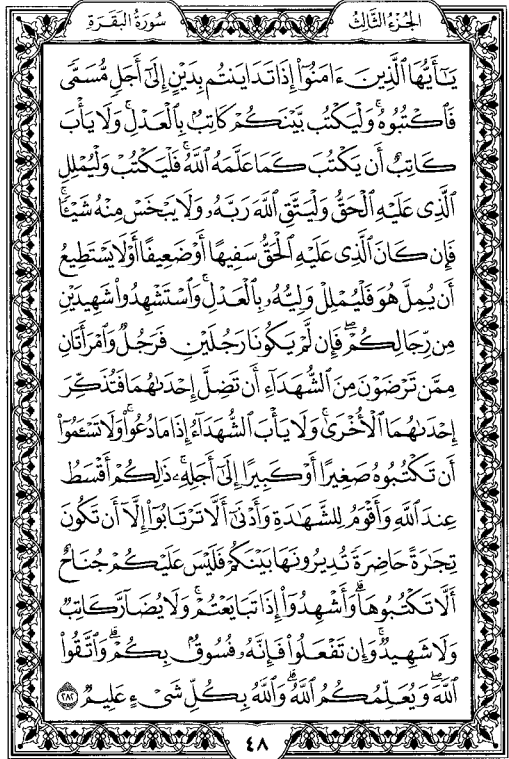 سُورَةُ البَقَرَةِ
الجُزءُ الثَّالِثُ
يَـٰٓأَيُّهَا ٱلَّذِينَ ءَامَنُوٓا۟ إِذَا تَدَايَنتُم بِدَيْنٍ إِلَىٰٓ أَجَلٍ مُّسَمًّى
فَٱكْتُبُوهُ ۚ وَلْيَكْتُب بَّيْنَكُمْ كَاتِبٌۢ بِٱلْعَدْلِ ۚ وَلَا يَأْبَ
كَاتِبٌ أَن يَكْتُبَ كَمَا عَلَّمَهُ ٱللَّهُ ۚ فَلْيَكْتُبْ وَلْيُمْلِلِ
ٱلَّذِى عَلَيْهِ ٱلْحَقُّ وَلْيَتَّقِ ٱللَّهَ رَبَّهُۥ وَلَا يَبْخَسْ مِنْهُ شَيْـًٔا ۚ
فَإِن كَانَ ٱلَّذِى عَلَيْهِ ٱلْحَقُّ سَفِيهًا أَوْ ضَعِيفًا أَوْ لَا يَسْتَطِيعُ
أَن يُمِلَّ هُوَ فَلْيُمْلِلْ وَلِيُّهُۥ بِٱلْعَدْلِ ۚ وَٱسْتَشْهِدُوا۟ شَهِيدَيْنِ
مِن رِّجَالِكُمْ ۖ فَإِن لَّمْ يَكُونَا رَجُلَيْنِ فَرَجُلٌ وَٱمْرَأَتَانِ
مِمَّن تَرْضَوْنَ مِنَ ٱلشُّهَدَآءِ أَن تَضِلَّ إِحْدَىٰهُمَا فَتُذَكِّرَ
إِحْدَىٰهُمَا ٱلْأُخْرَىٰ ۚ وَلَا يَأْبَ ٱلشُّهَدَآءُ إِذَا مَا دُعُوا۟ ۚ وَلَا تَسْـَٔمُوٓا۟
أَن تَكْتُبُوهُ صَغِيرًا أَوْ كَبِيرًا إِلَىٰٓ أَجَلِهِۦ ۚ ذَٰلِكُمْ أَقْسَطُ
عِندَ ٱللَّهِ وَأَقْوَمُ لِلشَّهَـٰدَةِ وَأَدْنَىٰٓ أَلَّا تَرْتَابُوٓا۟ ۖ إِلَّآ أَن تَكُونَ
تِجَـٰرَةً حَاضِرَةً تُدِيرُونَهَا بَيْنَكُمْ فَلَيْسَ عَلَيْكُمْ جُنَاحٌ
أَلَّا تَكْتُبُوهَا ۗ وَأَشْهِدُوٓا۟ إِذَا تَبَايَعْتُمْ ۚ وَلَا يُضَآرَّ كَاتِبٌ
وَلَا شَهِيدٌ ۚ وَإِن تَفْعَلُوا۟ فَإِنَّهُۥ فُسُوقٌۢ بِكُمْ ۗ وَٱتَّقُوا۟
ٱللَّهَ ۖ وَيُعَلِّمُكُمُ ٱللَّهُ ۗ وَٱللَّهُ بِكُلِّ شَىْءٍ عَلِيمٌ ٢٨٢
٤٨